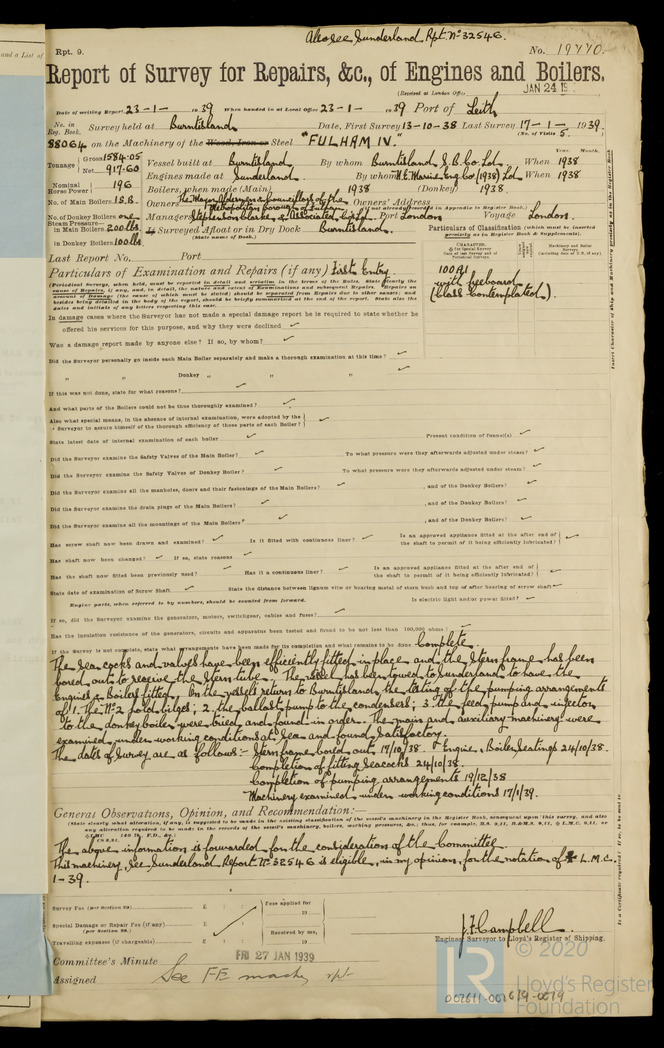 and a List of
Also see Sunderland Rpt. No 32546.
Rpt. 9.
No. 19770.
Report of Survey for Repairs, &c., of Engines and Boilers.
(Received at London Office JAN 24 19
Date of writing Report 23-1- 19 39 When handed in at Local Office 23-1- 19 39 Port of Leith
No. in Reg. Book. Survey held at Burntisland Date, First Survey 13-10-38 Last Survey 17-1- 1939
(No. of Visits 5.)
88064 on the Machinery of the Wood, Iron or Steel "FULHAM IV."
Tonnage Gross 1584.05 Vessel built at Burntisland By whom Burntisland S.B. Co Ld. When 1938
Year. Month.
Net 917.60
Nominal Horse Power 196 Engines made at Sunderland By whom N.E. Marine Eng. Co (1938) Ld When 1938
Boilers, when made (Main) 1938 (Donkey) 1938.
No. of Main Boilers 1 S.B. Owners The Mayor Aldermen & Councillors of the Metropolitan Borough of Fulham Owners' Address
(if not already recorded in Appendix to Register Book.)
No. of Donkey Boilers one Managers Stephenson Clarke & Associated Cos Ld. Port London Voyage London.
Steam Pressure in Main Boilers 200 lbs. If Surveyed Afloat or in Dry Dock Burntisland.
(State name of Dock.)
in Donkey Boilers 100 lbs.
Particulars of Classification (which must be inserted precisely as in Register Book & Supplements).
Last Report No. Port
Particulars of Examination and Repairs (if any) First Entry.
100A1
with freeboard
(Class Contemplated).
(Periodical Surveys, when held, must be reported in detail and seriatim in the terms of the Rules. State clearly the
cause of Repairs, if any, and, in detail, the nature and extent of Examinations and subsequent Repairs. Repairs on
account of Damage (the cause of which must be stated) should be separated from Repairs due to other causes; and
besides being detailed in the body of the report, should be briefly summarised at the end of the report. State also the
dates and initials of any letters respecting this case.
In damage cases where the Surveyor has not made a special damage report he is required to state whether he
offered his services for this purpose, and why they were declined
Was a damage report made by anyone else? If so, by whom?
Did the Surveyor personally go inside each Main Boiler separately and make a thorough examination at this time?
" " Donkey " " "
If this was not done, state for what reasons?
And what parts of the Boilers could not be thus thoroughly examined?
Also what special means, in the absence of internal examination, were adopted by the
Surveyor to assure himself of the thorough efficiency of those parts of each Boiler?
State latest date of internal examination of each boiler Present condition of funnel(s)
Did the Surveyor examine the Safety Valves of the Main Boiler? To what pressure were they afterwards adjusted under steam?
Did the Surveyor examine the Safety Valves of Donkey Boiler? To what pressure were they afterwards adjusted under steam?
Did the Surveyor examine all the manholes, doors and their fastenings of the Main Boilers? , and of the Donkey Boilers?
Did the Surveyor examine the drain plugs of the Main Boilers? , and of the Donkey Boilers?
Did the Surveyor examine all the mountings of the Main Boilers? , and of the Donkey Boilers?
Has screw shaft now been drawn and examined? Is it fitted with continuous liner? Is an approved appliance fitted at the after end of
the shaft to permit of it being efficiently lubricated?
Has shaft now been changed? If so, state reasons
Has the shaft now fitted been previously used? Has it a continuous liner? Is an approved appliance fitted at the after end of
the shaft to permit of it being efficiently lubricated?
State date of examination of Screw Shaft State the distance between lignum vitæ or bearing metal of stern bush and top of after bearing of screw shaft
Engine parts, when referred to by numbers, should be counted from forward. Is electric light and/or power fitted?
If so, did the Surveyor examine the generators, motors, switchgear, cables and fuses?
Has the insulation resistance of the generators, circuits and apparatus been tested and found to be not less than 100,000 ohms?
If the Survey is not complete, state what arrangements have been made for its completion and what remains to be done Complete.
The Sea cocks and valves have been efficiently fitted in place and the Stern frame has been
bored out to receive the Stern tube. The vessel has been towed to Sunderland to have the
Engines & Boilers fitted. On the vessel's return to Burntisland, the testing of the pumping arrangements
of 1. The No 2 hold bilges; 2. the ballast pump to the condensers; 3. the feed pump and injector
to the donkey boiler were tried and found in order. The main and auxiliary machinery were
examined under working conditions at Sea and found Satisfactory.
The dates of Survey are as follows:- Stern frame bored out, 17/10/38. Engine & Boiler Seatings 24/10/38.
Completion of fitting Seacocks 24/10/38.
Completion of pumping arrangements 19/12/38
Machinery examined under working conditions 17/1/39.
General Observations, Opinion, and Recommendation:-
(State clearly what alteration, if any, is suggested to be made in the existing classification of the vessel's machinery in the Register Book, consequent upon this survey, and also
any alteration required to be made in the records of the vessel's machinery, boilers, working pressures, &c.; thus, for example, B.S. 9,11, B.&M.S. 9,11, or L.M.C. 9,11, or
The above information is forwarded for the consideration of the Committee.
This machinery, see Sunderland Report No 32546 is eligible, in my opinion, for the notation of L.M.C.
1-39.
Survey Fee (per Section 29) £ : : Fees applied for
19
Special Damage or Repair Fee (if any) (per Section 29.) £ : :
Received by me,
Travelling expenses (if chargeable) £ : : 19
J.F. Campbell
Engineer Surveyor to Lloyd's Register of Shipping.
Committee's Minute FRI 27 JAN 1939
Assigned See F.E. machy rpt
© 2020
LR
Lloyd's Register
Foundation
002611-002619-0019